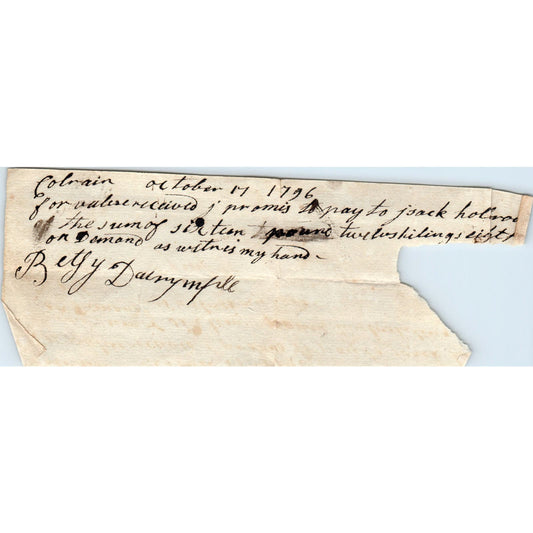 Colrain october 17 1796
for value received j promis to pay to jsack holroo
the sum of sixteen pound twelvshilings eight
on Demand as witnes my hand
Betsy Dalrymple